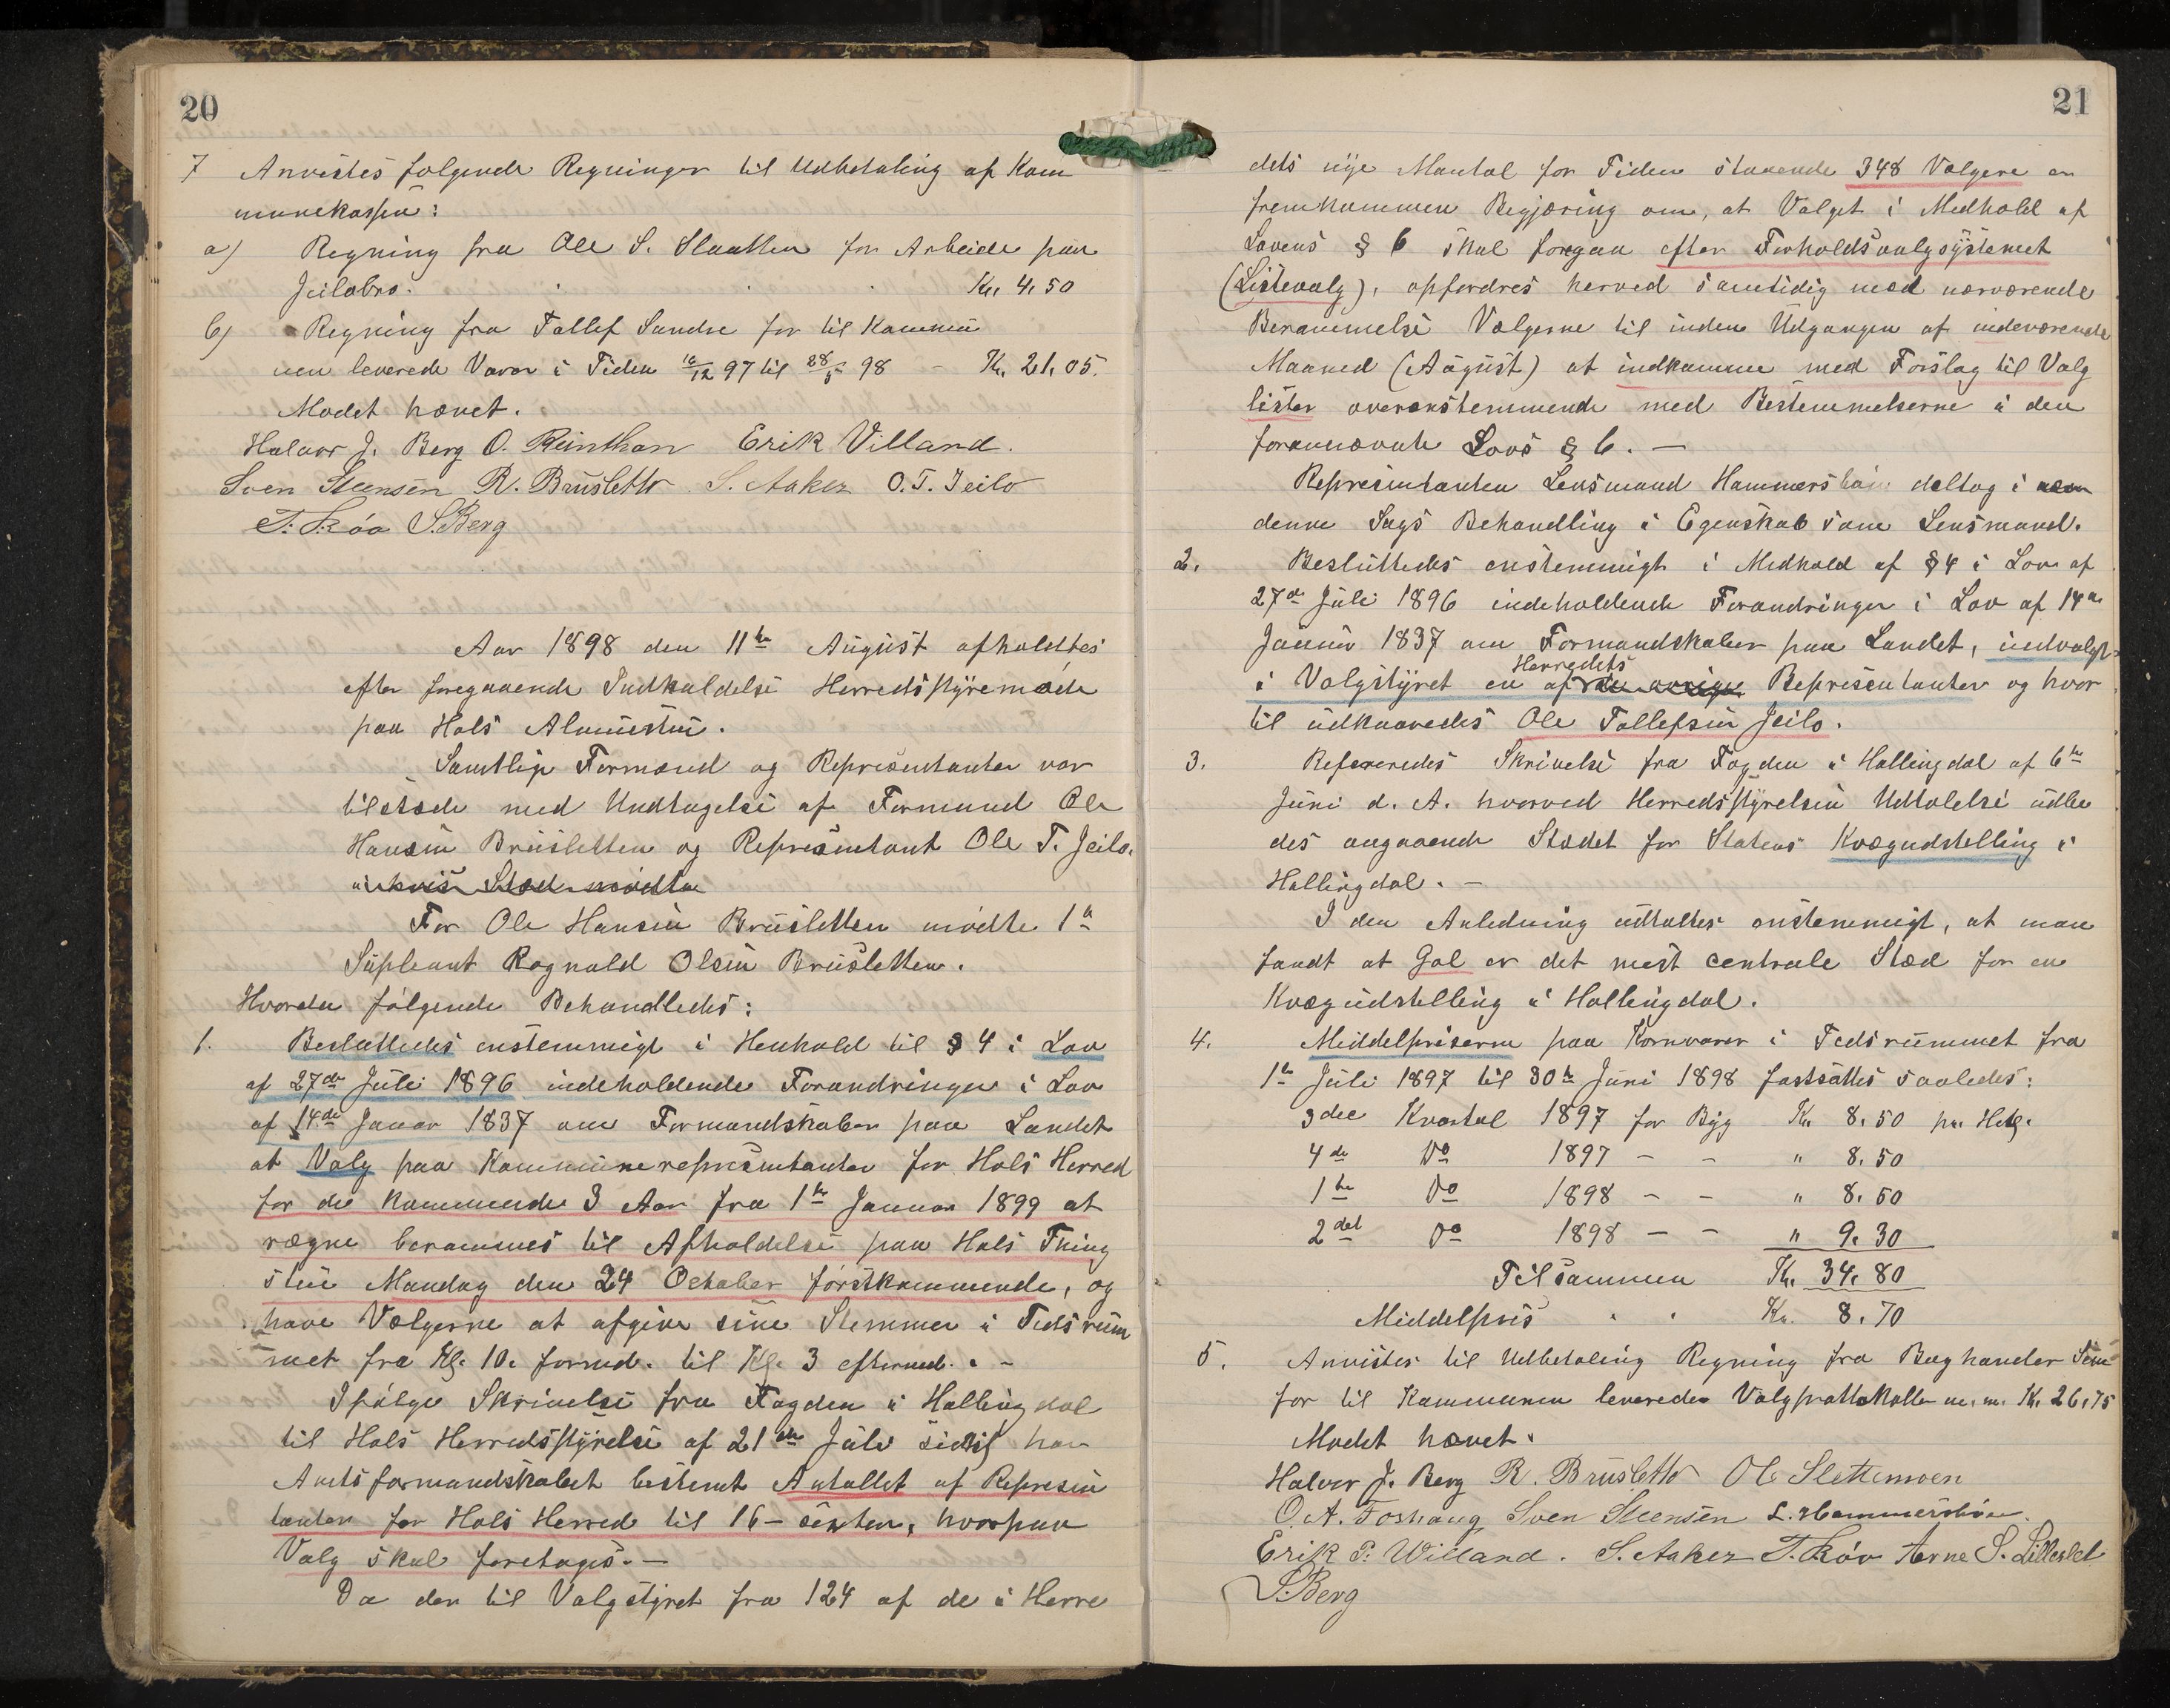 20
7 Anvistes følgende Regninger til Udbetaling af Kom
munekassen:
a) Regning fra Ole S. Slaatten for Arbeide paa
Jeilobro. . . . Kr. 4.50
b) Regning fra Tollef Sundre for til Kommu
nen leverede Varer i Tiden 97 til 28/5 98 – Kr. 21.05.
Mødet hævet.
Halvor J. Berg O. Reinthon Erik Villand.
Sven Steensen R. Brusletto. S. Aaker O. T. Jeilo
T. Skóo S. Berg
Aar 1898 den 11te August afholdtes
efter foregaaende Indkaldelse Herredsstyremøde
paa Hols Alumestue.
Samtlige Formænd og Repræsentanter var
tilstede med Undtagelse af Formand Ole
Hansen Brusletten og Repræsentant Ole T. Jeilo.
i hvis Sted mødte
For Ole Hansen Brusletten mødte 1ste
Supleant Ragnald Olsen Brusletten.
Hvorda følgende Behandledes:
1. Besluttedes enstemmigt i Henhold til § 4 i Lov
af 27de Juli 1896 indeholdende Forandringer i Lov
af 14de Januar 1837 om Formandskaber paa Landet
at Valg paa Kommunerepræsentanter for Hols Herred
for de kommende 3 Aar fra 1ste Januar 1899 at
regne berammes til Afholdelse paa Hols Thing
stue Mandag den 24 October førstkommende, og
have Vælgerne at afgive sine Stemmer i Tidsrum
met fra Kl. 10. formd. til Kl. 3 eftermd. . –
Ifølge Skrivelse fra Fogden i Hallingdal
til Hols Herredsstyrelse af 21de Juli sidstl har
Amtsformandskabet bestemt Antallet af Represen
tanter for Hols Herred til 16 – sexten, hvorpaa
Valg skal foretages. –
Da der til Valgstyret fra 124 af de i Herre
21
dets nye Mantal for Tiden staaende 348 Vælgere er
fremkommen Begjæring om, at Valget i Medhold af
Lovens § 6 skal foregaa efter Forholdsvalgsystemet
(Listevalg), opfordres herved samtidig med nærværende
Berammelse Vælgerne til inden Udgangen af indeværende
Maaned (August) at indkomme med Forslag til Valg
lister overenstemmende med Bestemmelserne i den
forannævnte Lovs § 6. –
Representanten Lensmand Hammersbøen deltog i
denne Sags Behandling i Egenskab som Lensmand.
2. Besluttedes enstemmigt i Medhold af § 4 i Lov af
27de Juli 1896 indeholdende Forandringer i Lov af 14de
Januar 1837 om Formandskaber paa Landet, indvalgt
Herredets
i Valgstyret en af de øvrige Representanter og hvor
til udkaaredes Ole Tollefsen Jeilo.
3. Refereredes Skrivelse fra Fogden i Hallingdal af 6te
Juni d. A. hvorved Herredsstyrelsen Udtalelse udbe
des angaaende Stedet for Statens Kvægudstilling i
Hallingdal. –
I den Anledning udtaltes enstemmigt, at man
fandt at Gol er det mest centrale Sted for en
Kvægudstilling i Hallingdal.
4. Middelpriserne paa Kornvarer i Tidsrummet fra
1te Juli 1897 til 30te Juni 1898 fastsattes saaledes:
3die Kvartal 1897 for Byg Kr. 8.50 pr. Hktl.
4de Do 1897 – – " 8.50
1ste Do 1898 – – " 8.50
2det Do 1898 – – " 9.30
Tilsammen Kr. 34.80
Middelpris . . Kr. 8.70
5. Anvistes til Udbetaling Regning fra Boghandler Sem
for til Kommunen leverede Valgprottokoller m. m. Kr. 26.75
Mødet hævet.
Halvor J. Berg R. Brusletto Ole Slettemoen
O. A. Foshaug Sven Steensen L. Hammersbøen.
Erik P. Willand. S. Aaker T. Skóv Arne S. Lilleslet
S. Berg